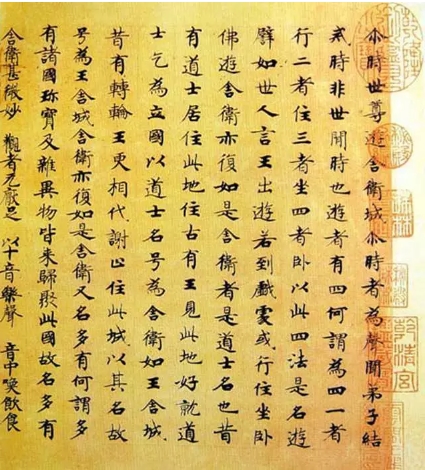 尒時世尊遊舍衛城尒時者為聲聞弟子結
戒時非世間時也遊者有四何謂為四一者
行二者住三者坐四者卧以此四法是名遊
譬如世人言王出遊若到戲處或行住坐卧
佛遊舍衛亦復如是舍衛者是道士名也昔
有道士居住此地往古有王見此地好就道
士乞為立國以道士名号為舍衛如王舍城
昔有轉輪王更相代謝止住此城以其名故
号為王舍城舍衛亦復如是舍衛又名多有何謂多
有諸國珎寶及雜異物皆来歸聚此國故名多有
舍衛甚微妙 觀者无厭足 以十音樂聲 音中喚飲食
乾清宮